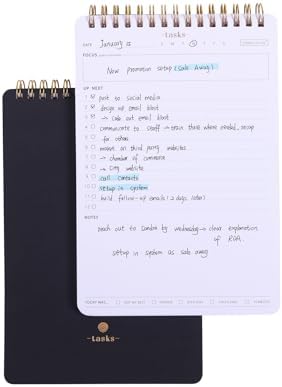 -tasks-
DATE January 12 S M T W T F S
FOCUS
New promotion setup (Sail Away)
UP NEXT
1 post to social media
2 design up email blast
3 → send out email blast
4 communicate to staff → train them where needed, recap
5 for others
6 mount on third party websites
7 → chamber of commerce
8 → city website
9 call contacts
10 setup in system
11 build follow-up emails (2 days later)
12
NOTES
reach out to Sandra by wednesday → clear explanation
of
setup in system as sale away
TODAY WAS
-tasks-